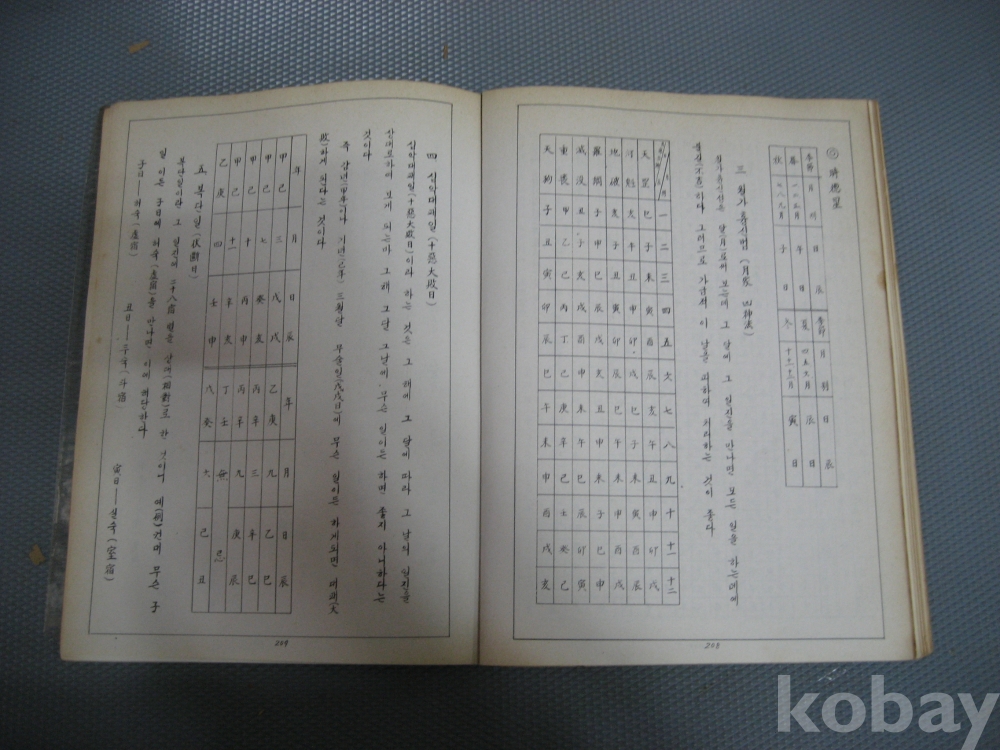 ◎ 時德星
季節 月別 日辰 季節 月別 日辰
春 一二三月 午日 夏 四五六月 辰日
秋 七八九月 子日 冬 十十一十二月 寅日
三 월가흉신법 (月家凶神法)
월가흉신은 달(月)로써 보는데 그 달에 그 일진을 만나면 모든 일을 하는데에
불길(不吉)하다 그러므로 가급적 이 날을 피하여 처리하는 것이 좋다
一 二 三 四 五 六 七 八 九 十 十一 十二
天罡 巳 子 未 寅 酉 辰 亥 午 丑 申 卯 戌
河魁 亥 午 丑 申 卯 戌 巳 子 未 寅 酉 辰
地破 亥 子 丑 寅 卯 辰 巳 午 未 申 酉 戌
羅網 子 申 巳 辰 戌 亥 丑 申 未 子 巳 申
滅没 丑 子 亥 戌 酉 申 未 午 巳 辰 卯 寅
重喪 甲 乙 己 丙 丁 己 庚 辛 己 壬 癸 己
天狗 子 丑 寅 卯 辰 巳 午 未 申 酉 戌 亥
208
四 십악대패일 (十惡大敗日)
십악대패일(十惡大敗日)이라 하는 것은 그 해에 그 달에 따라 그 날의 일진을
상대로하여 보게 되는바 그 해 그 달 그날에 무슨 일이든 하면 좋지 아니하다는
것이다
즉 갑년(甲年)이나 기년(己年) 三월달 무술일(戊戌日)에 무슨 일이든 하게되면 대패(大
敗)하게 된다는 것이다
年 月 日辰 年 月 日辰
甲己 三 戊戌 乙庚 九 乙巳
甲己 七 癸亥 丙辛 三 辛巳
甲己 十 丙申 丙辛 九 庚辰
甲己 十一 辛亥 丁壬 無 忌
乙庚 四 壬申 戊癸 六 己丑
五 복단일 (伏斷日)
복단일이란 그 일진과 二十八宿 별을 상대(相對)로 한 것이며 예(例)컨대 무슨 子
일이든 子日에 허숙(虛宿)을 만나면 이에 해당하다
子日—허숙(虛宿) 丑日—두숙(斗宿) 寅日—실숙(室宿)
209
kobay